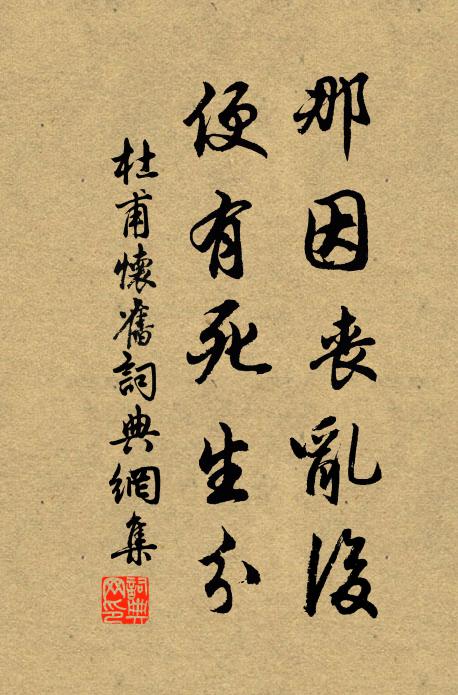 那因喪亂後
便有死生分
杜甫懷舊詞典網集
詞典網印